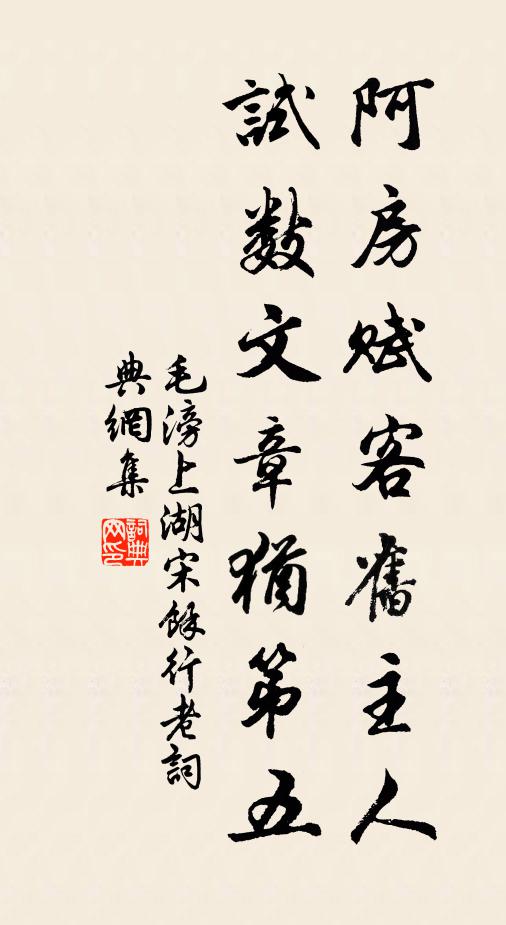 阿房賦客舊主人
試數文章猶第五
毛滂上湖宋餘行老詞
典網集
詞典網印